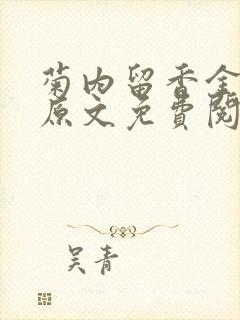 菊内留香全
原文免费阅
吴青